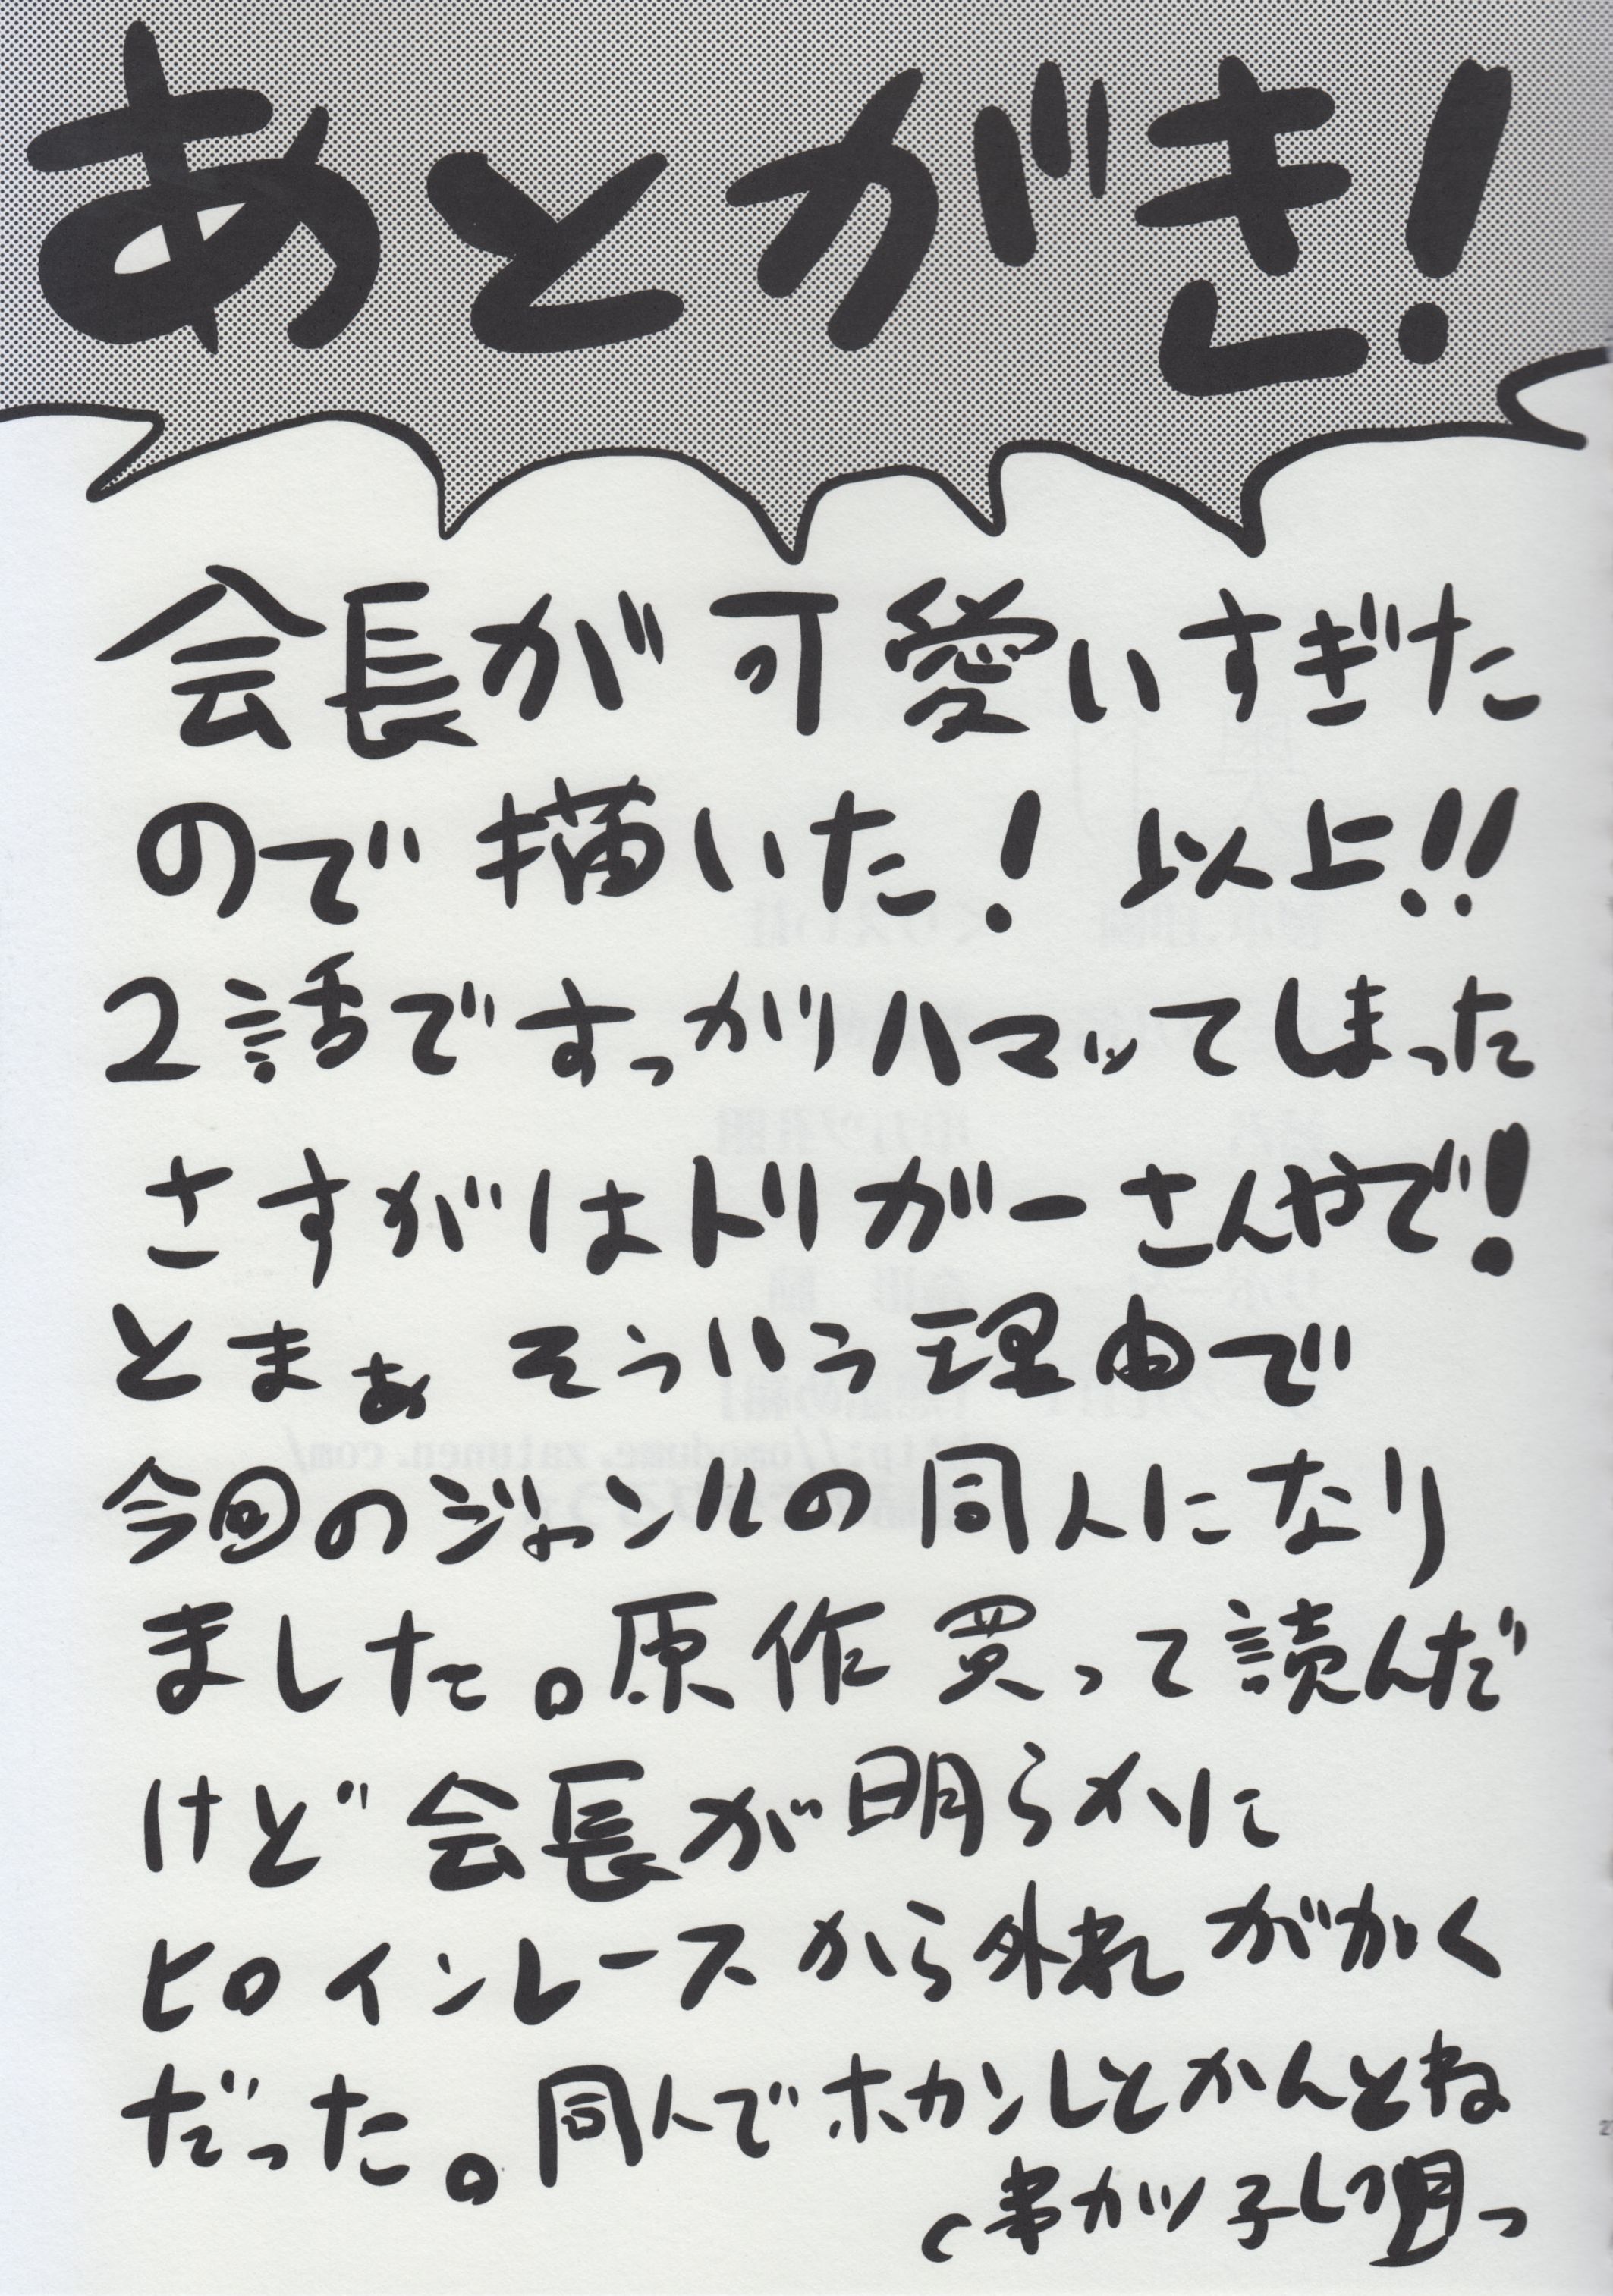 あとがき!
会長が可愛いすぎた
ので描いた! 以上!!
2話ですっかりハマッてしまった
さすがはトリガーさんやで!
とまぁ そういう理由で
今回のジャンルの同人になり
ました。原作買って読んだ
けど会長が明らかに
ヒロインレースから外れ ががく
だった。同人でホカンしとかんとね
串カツ